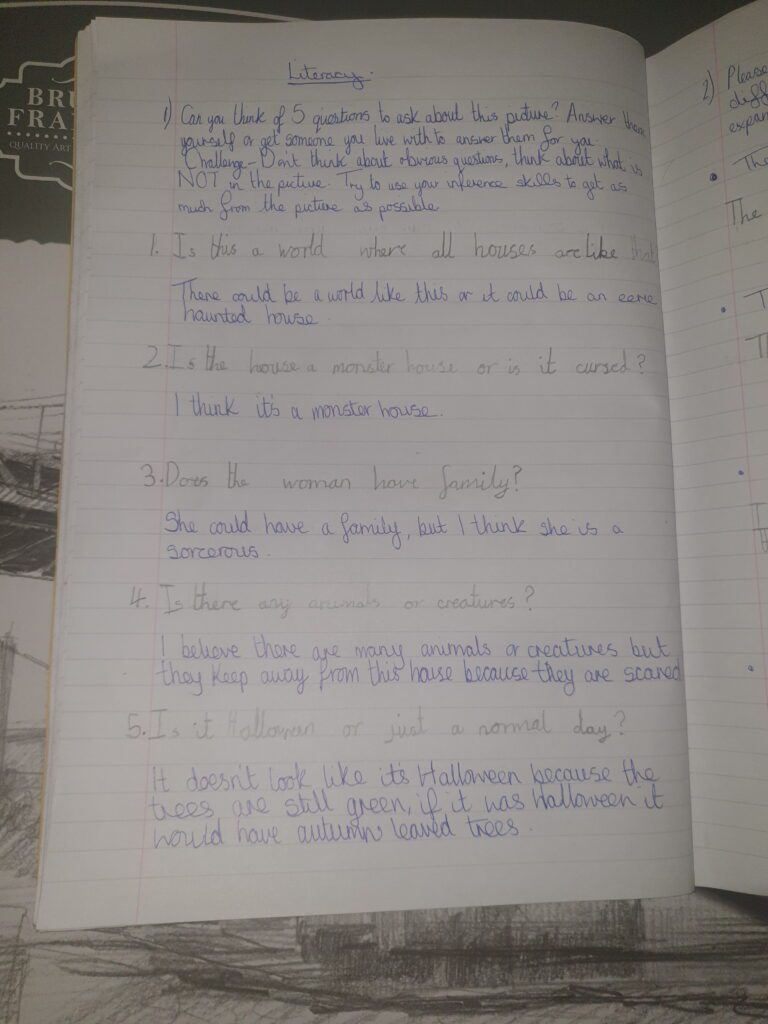 BRU
FRA
QUALITY ART
Literacy.
1) Can you think of 5 questions to ask about this picture? Answer them
yourself or get someone you live with to answer them for you.
Challenge - Don't think about obvious questions, think about what is
NOT in the picture. Try to use your inference skills to get as
much from the picture as possible
1. Is this a world where all houses are like that
There could be a world like this or it could be an eerie
haunted house.
2. Is the house a monster house or is it cursed?
I think it's a monster house.
3. Does the woman have family?
She could have a family, but I think she is a
sorcerous.
4. Is there any animals or creatures?
I believe there are many animals or creatures but
they keep away from this house because they are scared
5. Is it Halloween or just a normal day?
It doesn't look like it's Halloween because the
trees are still green, if it was halloween it
would have autumn leaved trees.
2) Please
diff
expan
The
The
T
Th
I